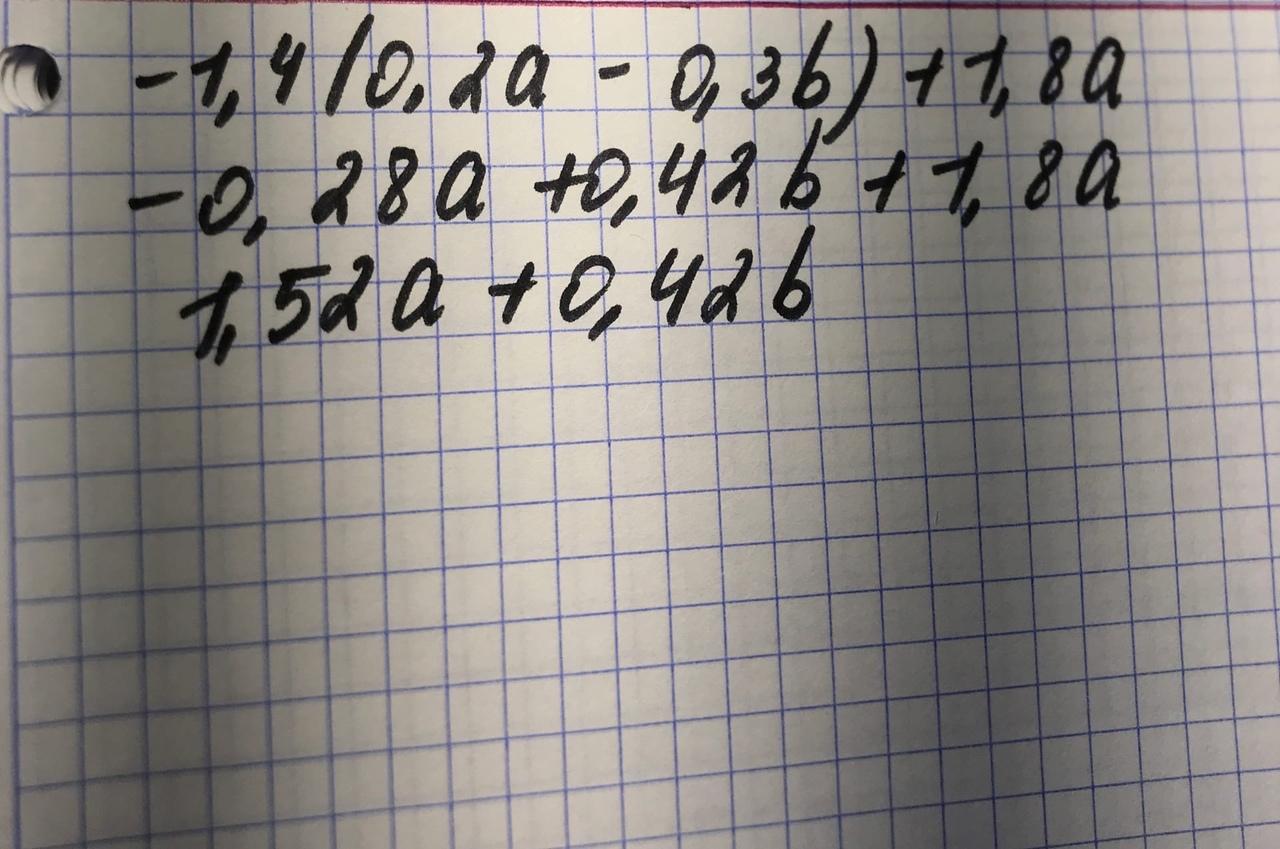 -1,4(0,2a - 0,3b) + 1,8a
-0,28a +0,42b + 1,8a
1,52a + 0,42b